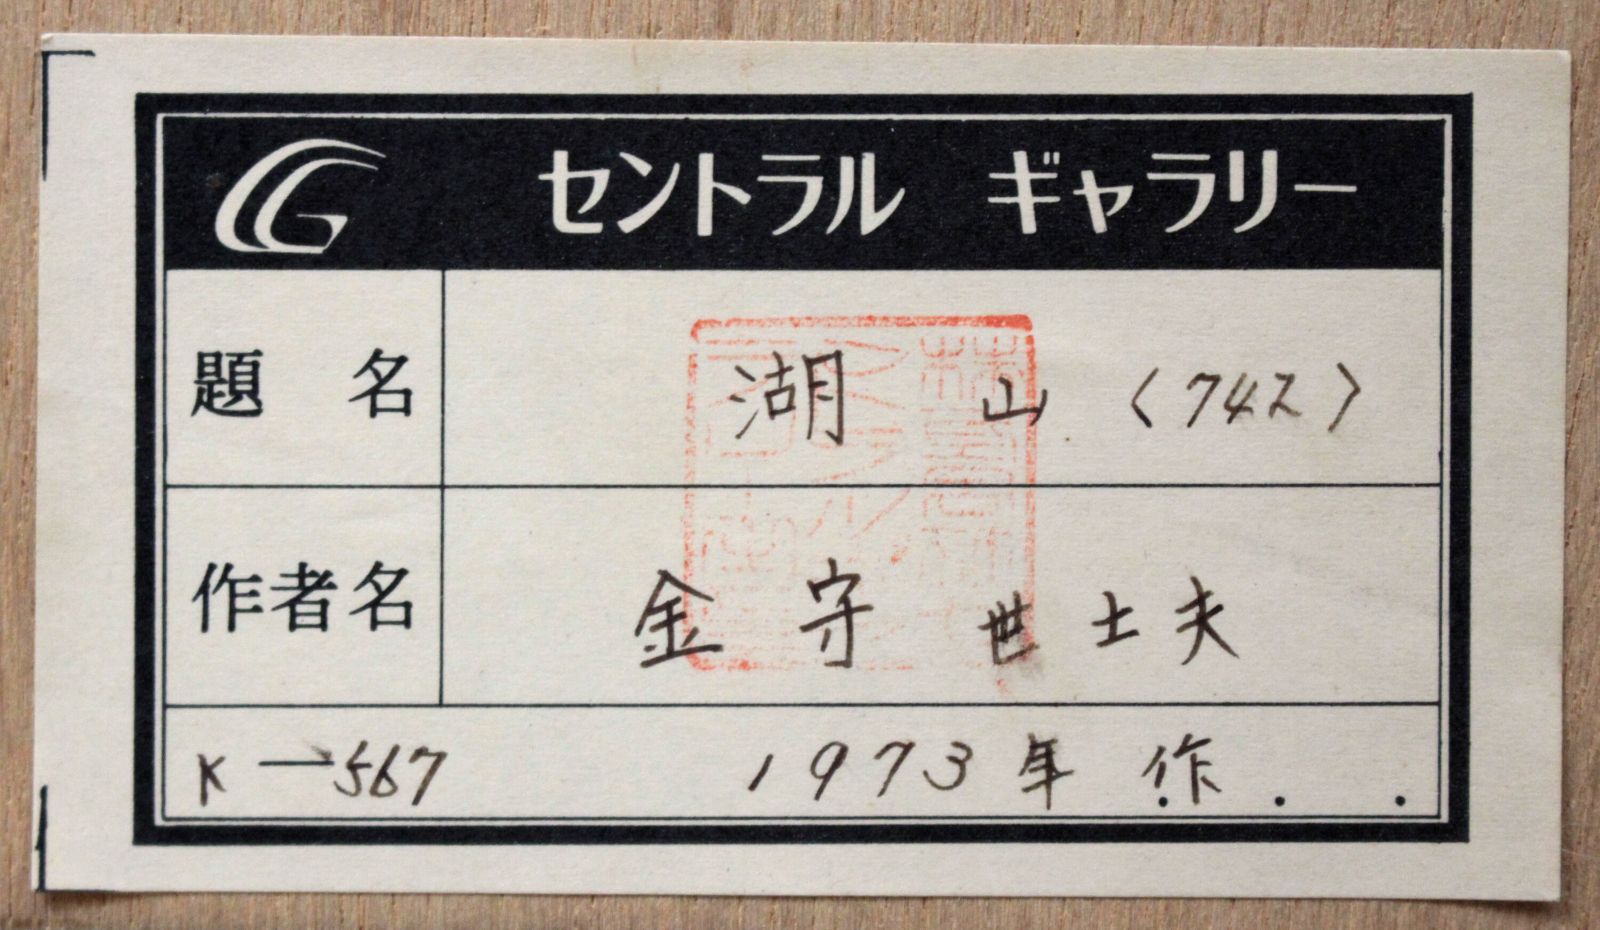 CG セントラル ギャラリー
題名 湖山〈74ス〉
作者名 金守世士夫
K-567 1973年作